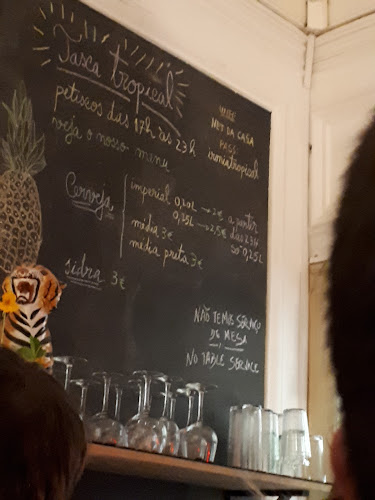 Tasca tropical
petiscos das 17h às 23h
veja o nosso menu
WIFI
NET DA CASA
PASS:
ironiatropical
Cerveja
imperial 0,20L → 2€
0,25L → 2,5€
a partir
das 23H
só 0,25L
média 3€
média preta 3€
sidra 3€
NÃO TEMOS SERVIÇO
DE MESA
NO TABLE SERVICE